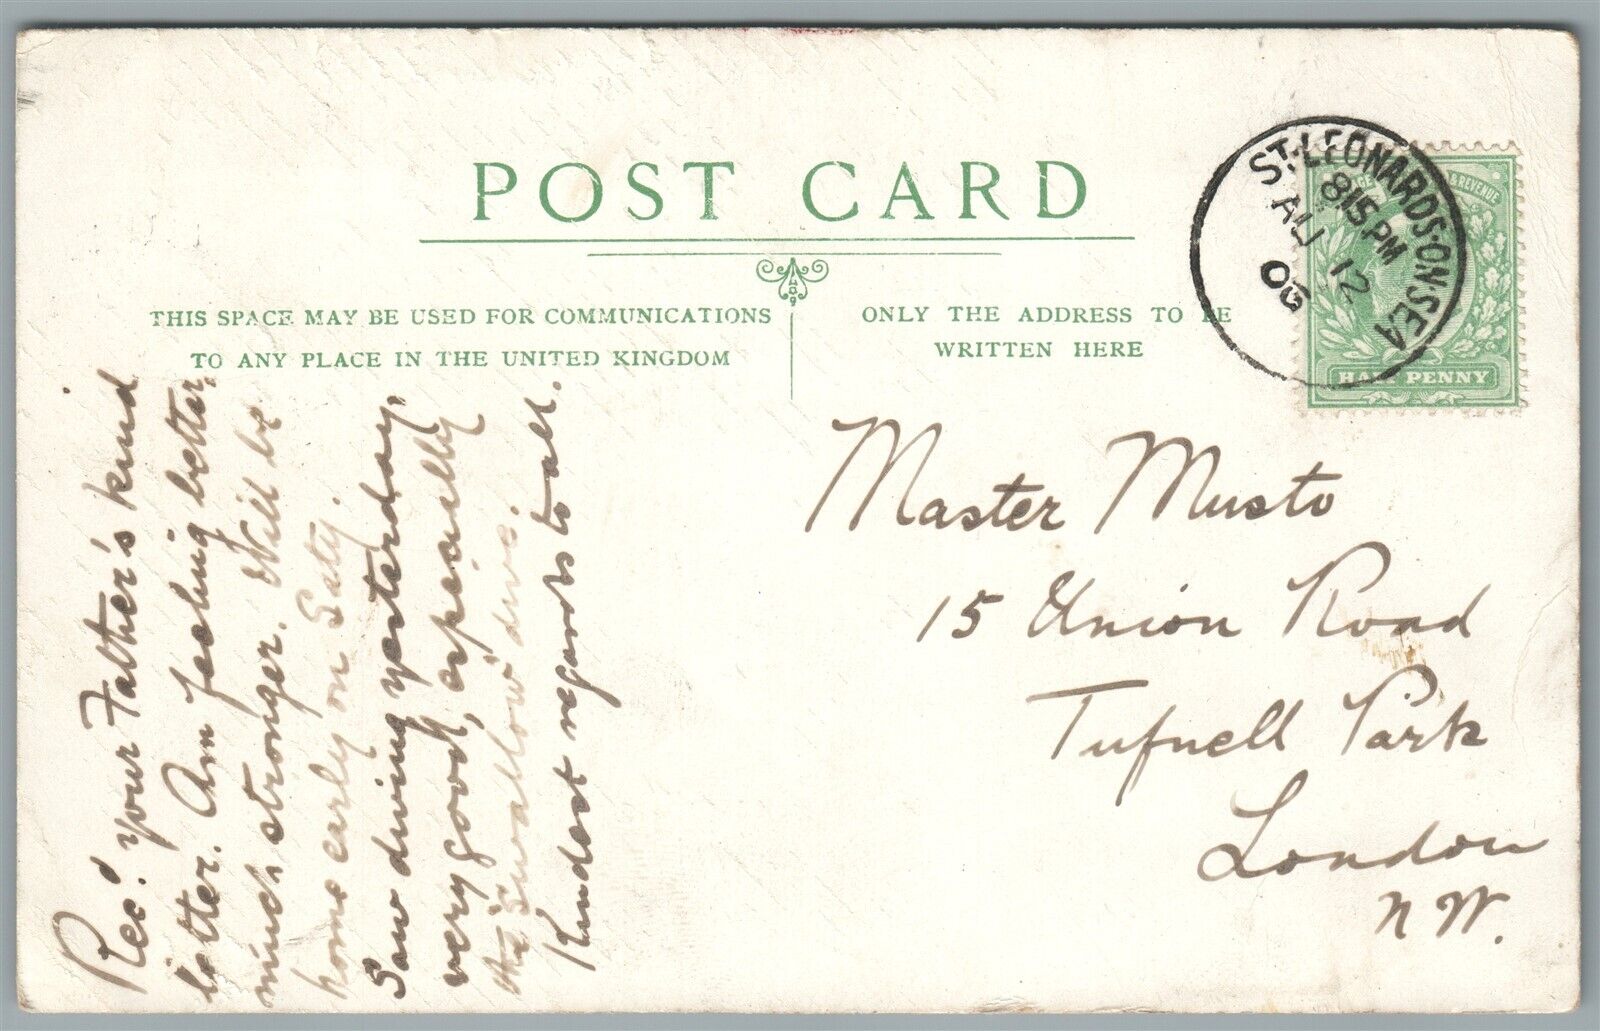 POST CARD
THIS SPACE MAY BE USED FOR COMMUNICATIONS
TO ANY PLACE IN THE UNITED KINGDOM
ONLY THE ADDRESS TO BE
WRITTEN HERE
ST. LEONARDS-ON-SEA
815 PM
AU 12
06
& REVENUE
HALF PENNY
Rec.d your Father's kind
letter. Am feeling better,
much stronger. Will be
home early on Saty.
Saw diving yesterday,
very good, especially
the 'Swallow' dive.
Kindest regards to all.
Master Musto
15 Union Road
Tufnell Park
London
N.W.